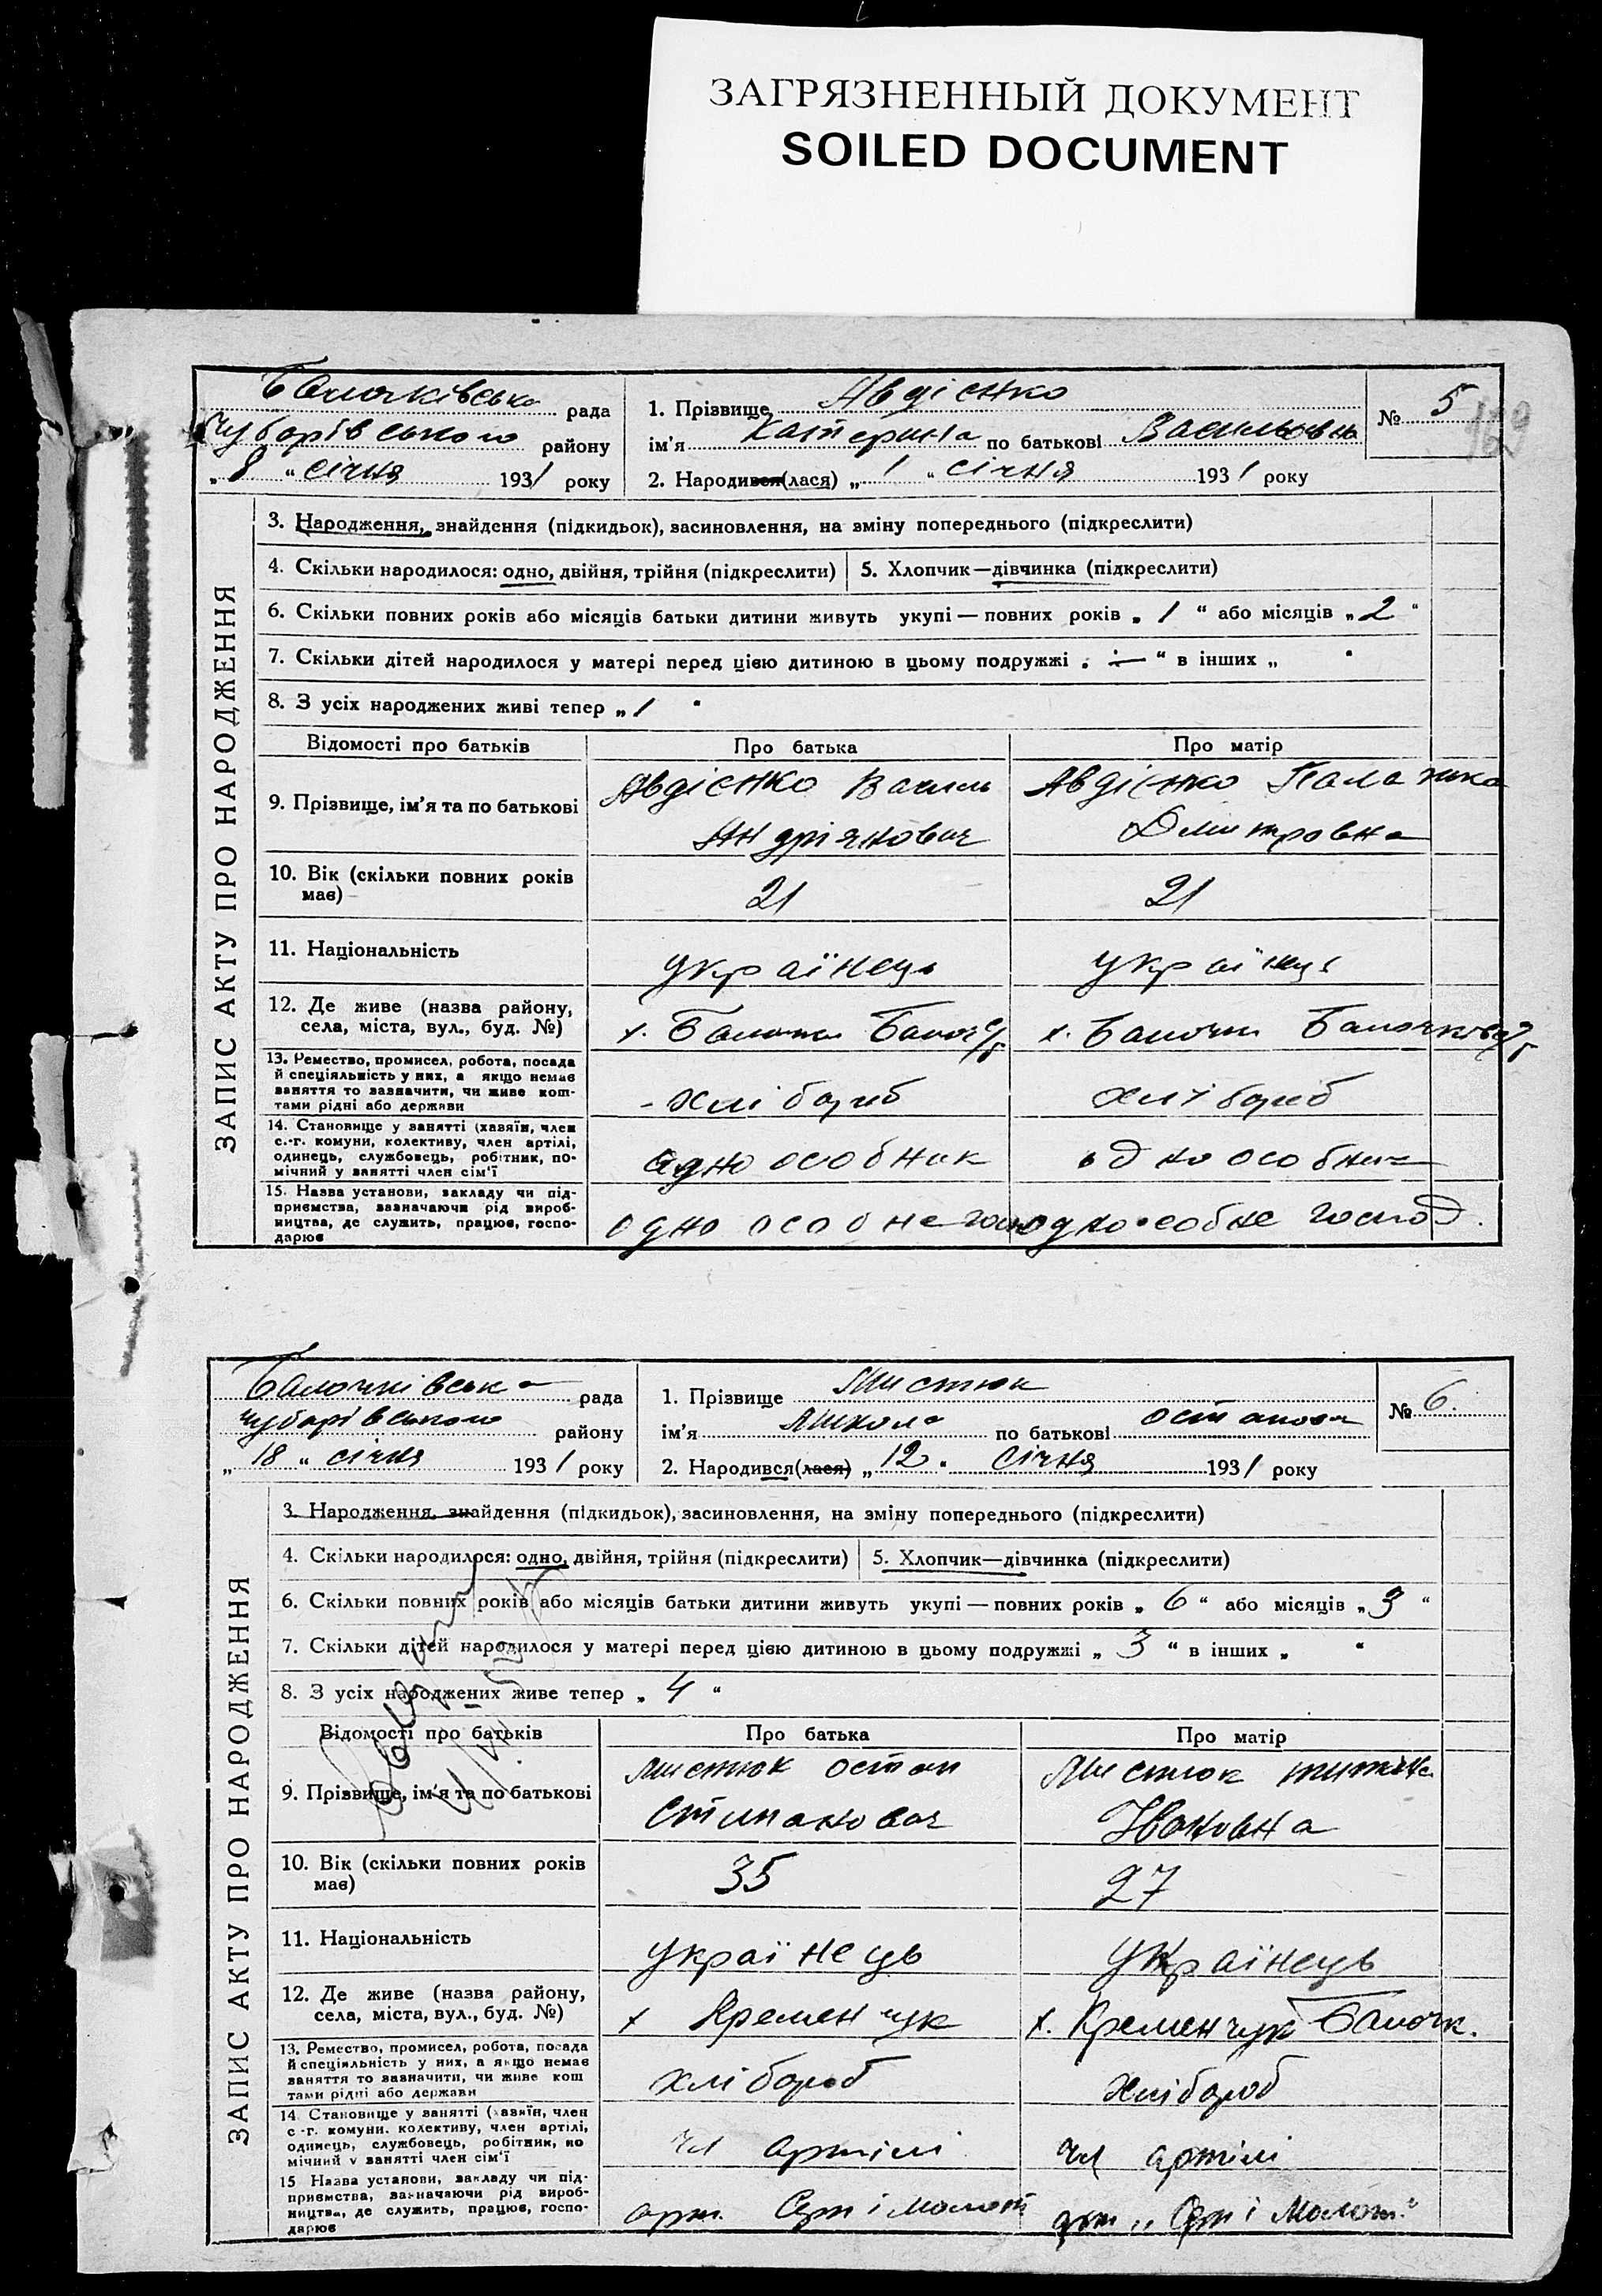 ЗАГРЯЗНЕННЫЙ ДОКУМЕНТ
SOILED DOCUMENT
Балочківська рада
Чубарівського району
„ 8 “ січня 1931 року
1. Прізвище Авдієнко
ім'я Катерина по батькові Васильовна
2. Народився(лася) „ 1 “ січня 1931 року
№ 5
129
ЗАПИС АКТУ ПРО НАРОДЖЕННЯ
3. Народження, знайдення (підкидьок), засиновлення, на зміну попереднього (підкреслити)
4. Скільки народилося: одно, двійня, трійня (підкреслити)
5. Хлопчик—дівчинка (підкреслити)
6. Скільки повних років або місяців батьки дитини живуть укупі — повних років „ 1 “ або місяців „ 2 “
7. Скільки дітей народилося у матері перед цією дитиною в цьому подружжі „ — “ в інших „ “
8. З усіх народжених живі тепер „ 1 “
Відомості про батьків Про батька Про матір
9. Прізвище, ім'я та по батькові
Авдієнко Василь
Андріянович
Авдієнко Палажка
Дмитровна
10. Вік (скільки повних років має) 21 21
11. Національність українець українці
12. Де живе (назва району, села, міста, вул., буд. №)
х. Балочки Балоч с/р
х. Балочки Балочков с/р
13. Ремество, промисел, робота, посада й спеціяльність у них, а якщо немає заняття то зазначити, чи живе коштами рідні або держави
хлібороб
хлібороб
14. Становище у занятті (хазяїн, член с.-г. комуни, колективу, член артілі, одинець, службовець, робітник, помічний у занятті член сім'ї
одноособник
одноособник
15. Назва установи, закладу чи підприємства, зазначаючи рід виробництва, де служить, працює, господарює
одноособне госп
одноособне господ.
Балочківська рада
Чубарівського району
„ 18 “ січня 1931 року
1. Прізвище Мистюк
ім'я Микола по батькові Остапович
2. Народився(лася) „ 12 “ Січня 1931 року
№ 6.
ЗАПИС АКТУ ПРО НАРОДЖЕННЯ
3. Народження, знайдення (підкидьок), засиновлення, на зміну попереднього (підкреслити)
4. Скільки народилося: одно, двійня, трійня (підкреслити)
5. Хлопчик—дівчинка (підкреслити)
6. Скільки повних років або місяців батьки дитини живуть укупі — повних років „ 6 “ або місяців „ 3 “
7. Скільки дітей народилося у матері перед цією дитиною в цьому подружжі „ 3 “ в інших „ “
8. З усіх народжених живе тепер „ 4 “
Відомості про батьків Про батька Про матір
9. Прізвище, ім'я та по батькові
Мистюк Остап
Стипанович
Мистюк
Івановна
10. Вік (скільки повних років має) 35 27
11. Національність українець українець
12. Де живе (назва району, села, міста, вул., буд. №)
х Кременчук
х. Кременчук Балочк.
13. Ремество, промисел, робота, посада й спеціяльність у них, а якщо немає заняття то зазначити, чи живе кош тами рідні або держави
хлібороб
хлібороб
14 Становище у занятті (хазяїн, член с -г. комуни. колективу, член артілі, одинець, службовець, робітник, по мічний у занятті член сім'ї
чл артілі
чл артілі
15 Назва установи, закладу чи підприємства, зазначаючи рід виробництва, де служить, працює, господарює
арт. Серп і молот
арт „Серп і Молот“